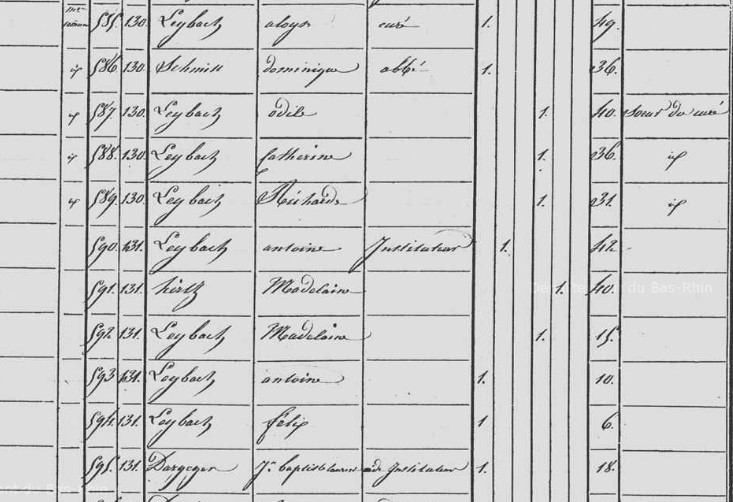 585. 130. Leybach aloyse curé 1. 49.
id 586. 130. Schmitt dominique abbé 1. 36.
id 587. 130. Leybach odile 1. 40. soeur du curé
id 588. 130. Leybach catherine 1. 36. id
id 589. 130. Leybach Richarde 1. 31. id
590. 131. Leybach antoine Instituteur 1. 42.
591. 131. hirtz Madelaine 1. 40.
592. 131. Leybach Madelaine 1. 15.
593 131. Leybach antoine 1. 10.
594. 131. Leybach félix 1 6.
595. 131. Jn baptiste aide Instituteur 1. 18.